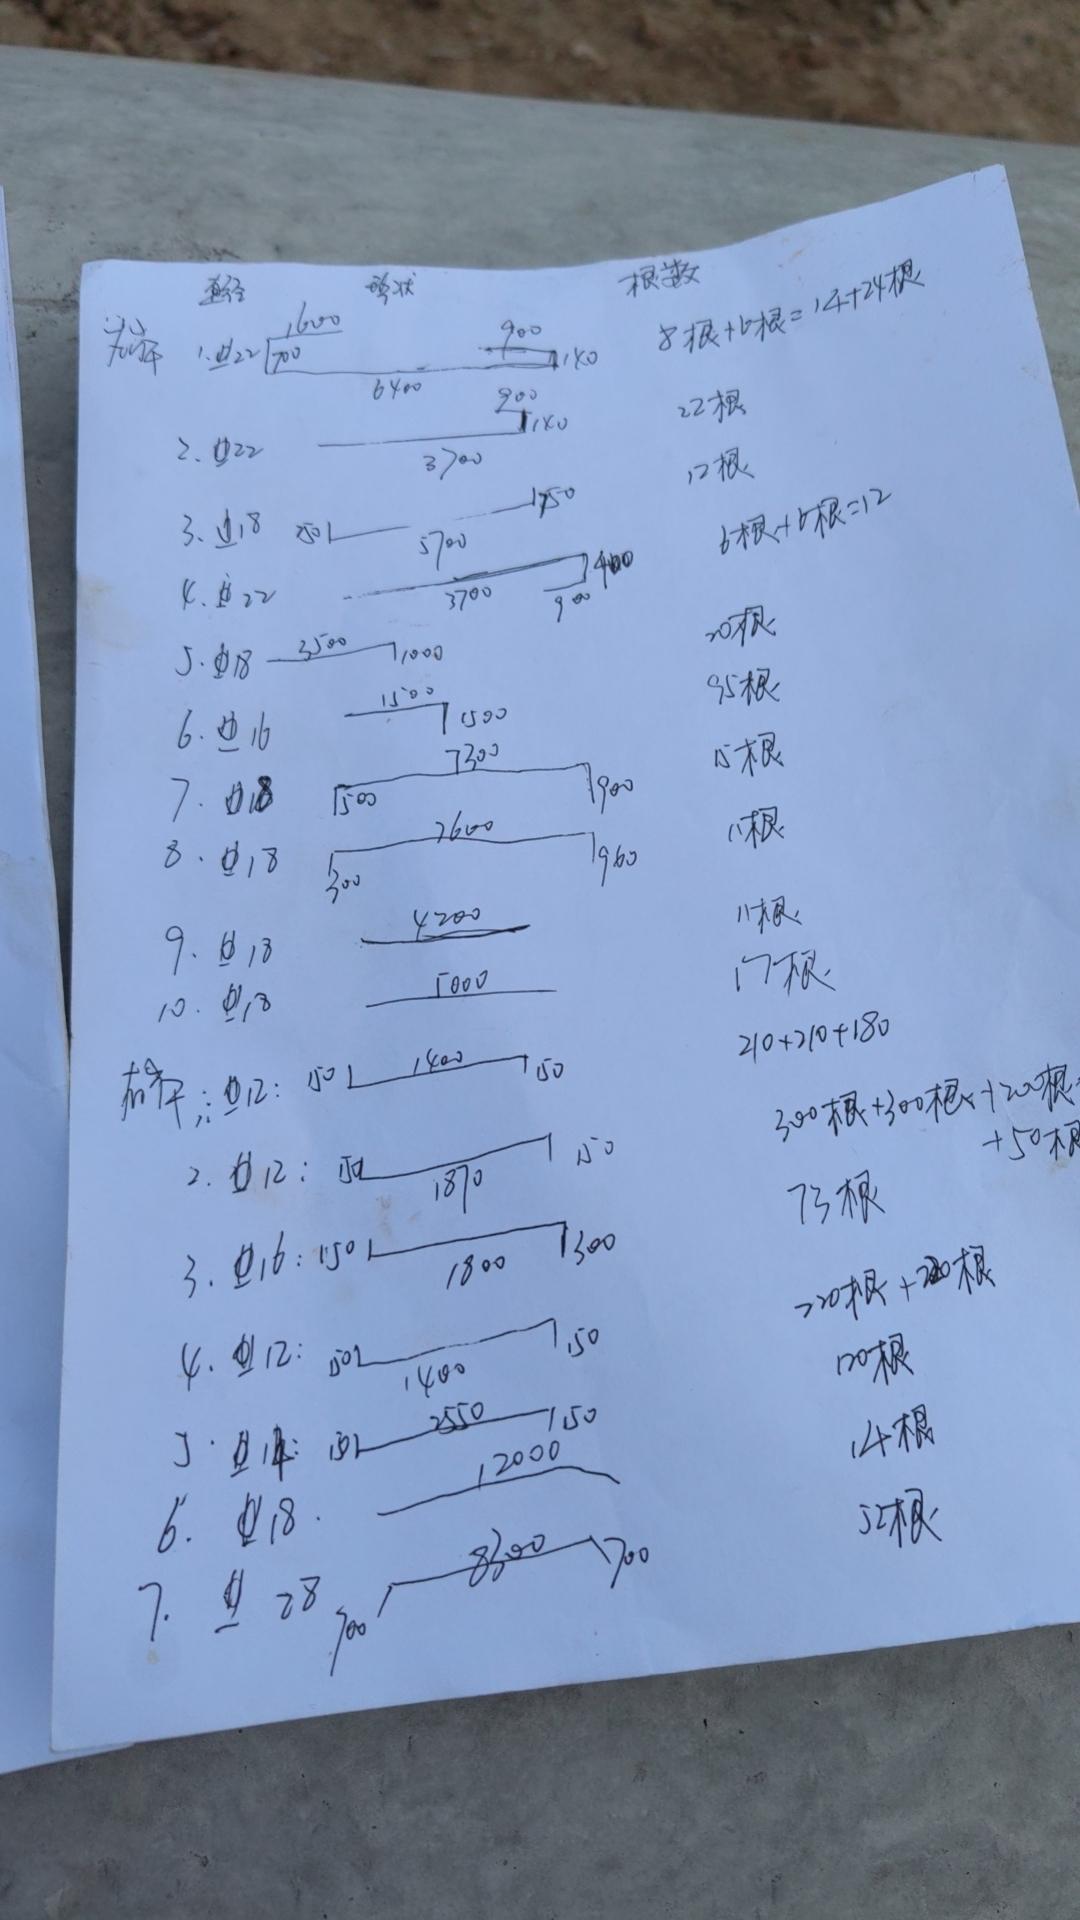 直径 形状 根数
1. Φ22 1600 700 6400 900 140 8根+6根=14+24根
2. Φ22 3700 900 140 22根
3. Φ18 5700 12根
4. Φ22 3700 900 6根+6根=12
5. Φ18 3500 1000 20根
6. Φ16 1500 1500 95根
7. Φ18 500 7300 900 15根
8. Φ18 300 7600 960 11根
9. Φ18 4200 11根
10. Φ18 5000 17根
Φ12: 150 1400 150 210+210+180
2. Φ12: 150 1870 150 300根+300根+200根
+50根
3. Φ16: 150 1800 300 73根
4. Φ12: 150 1400 150 220根+根
5. 150 2550 150 120根
6. Φ18. 12000 14根
7. Φ28 700 8300 700 52根